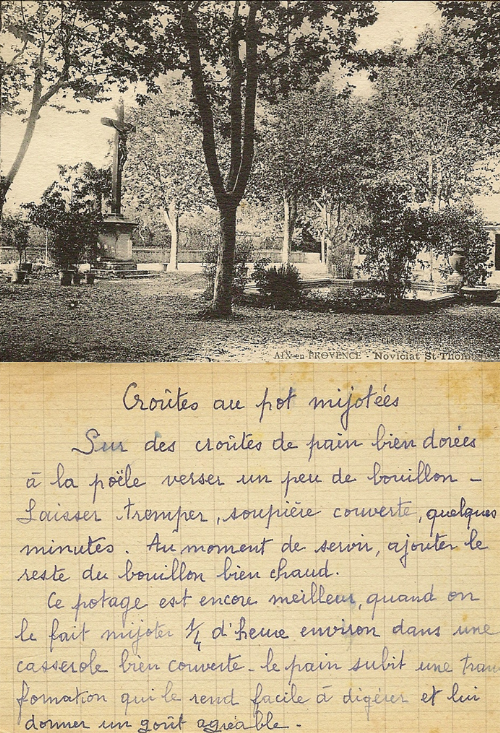 AIX-en-PROVENCE - Noviciat St Thomas
Croûtes au pot mijotées
Sur des croûtes de pain bien dorées
à la poële verser un peu de bouillon -
Laisser tremper, soupière couverte, quelques
minutes. Au moment de servir, ajouter le
reste du bouillon bien chaud.
Ce potage est encore meilleur, quand on
le fait mijoter 1/4 d'heure environ dans une
casserole bien couverte - le pain subit une trans
formation qui le rend facile à digérer et lui
donner un goût agréable -